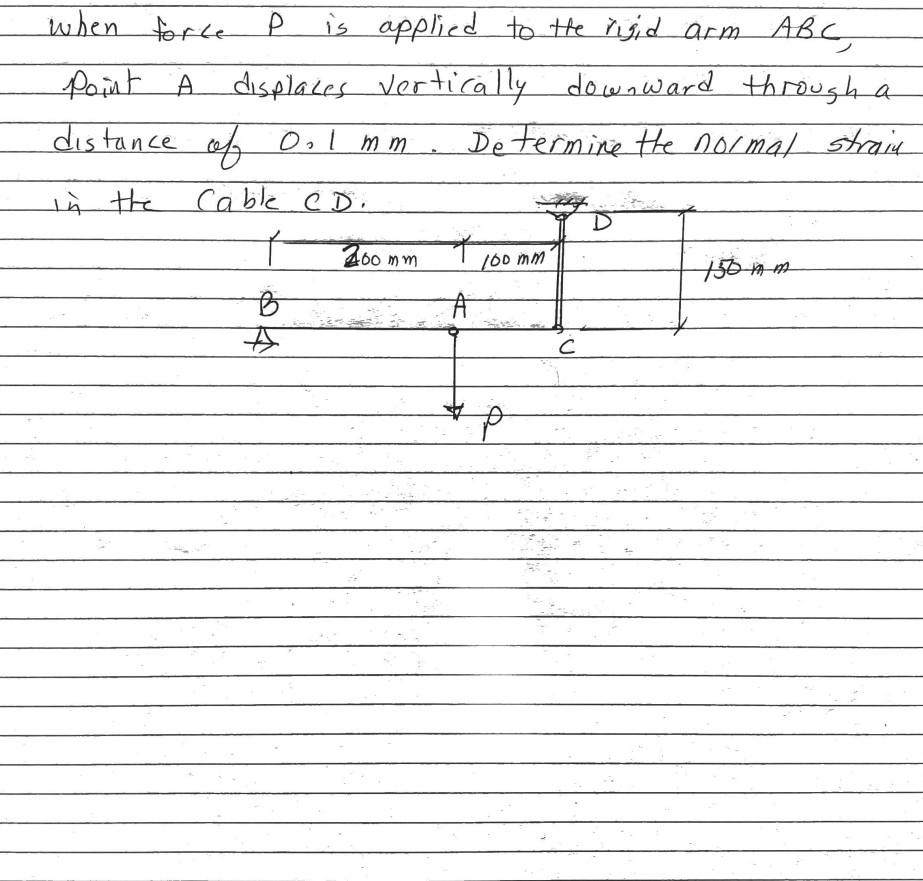 when force P is applied to the rigid arm ABC,
Point A displaces vertically downward through a
distance of 0.1 mm. Determine the normal strain
in the Cable CD.
D
200 mm 100 mm
150 mm
B A
C
P